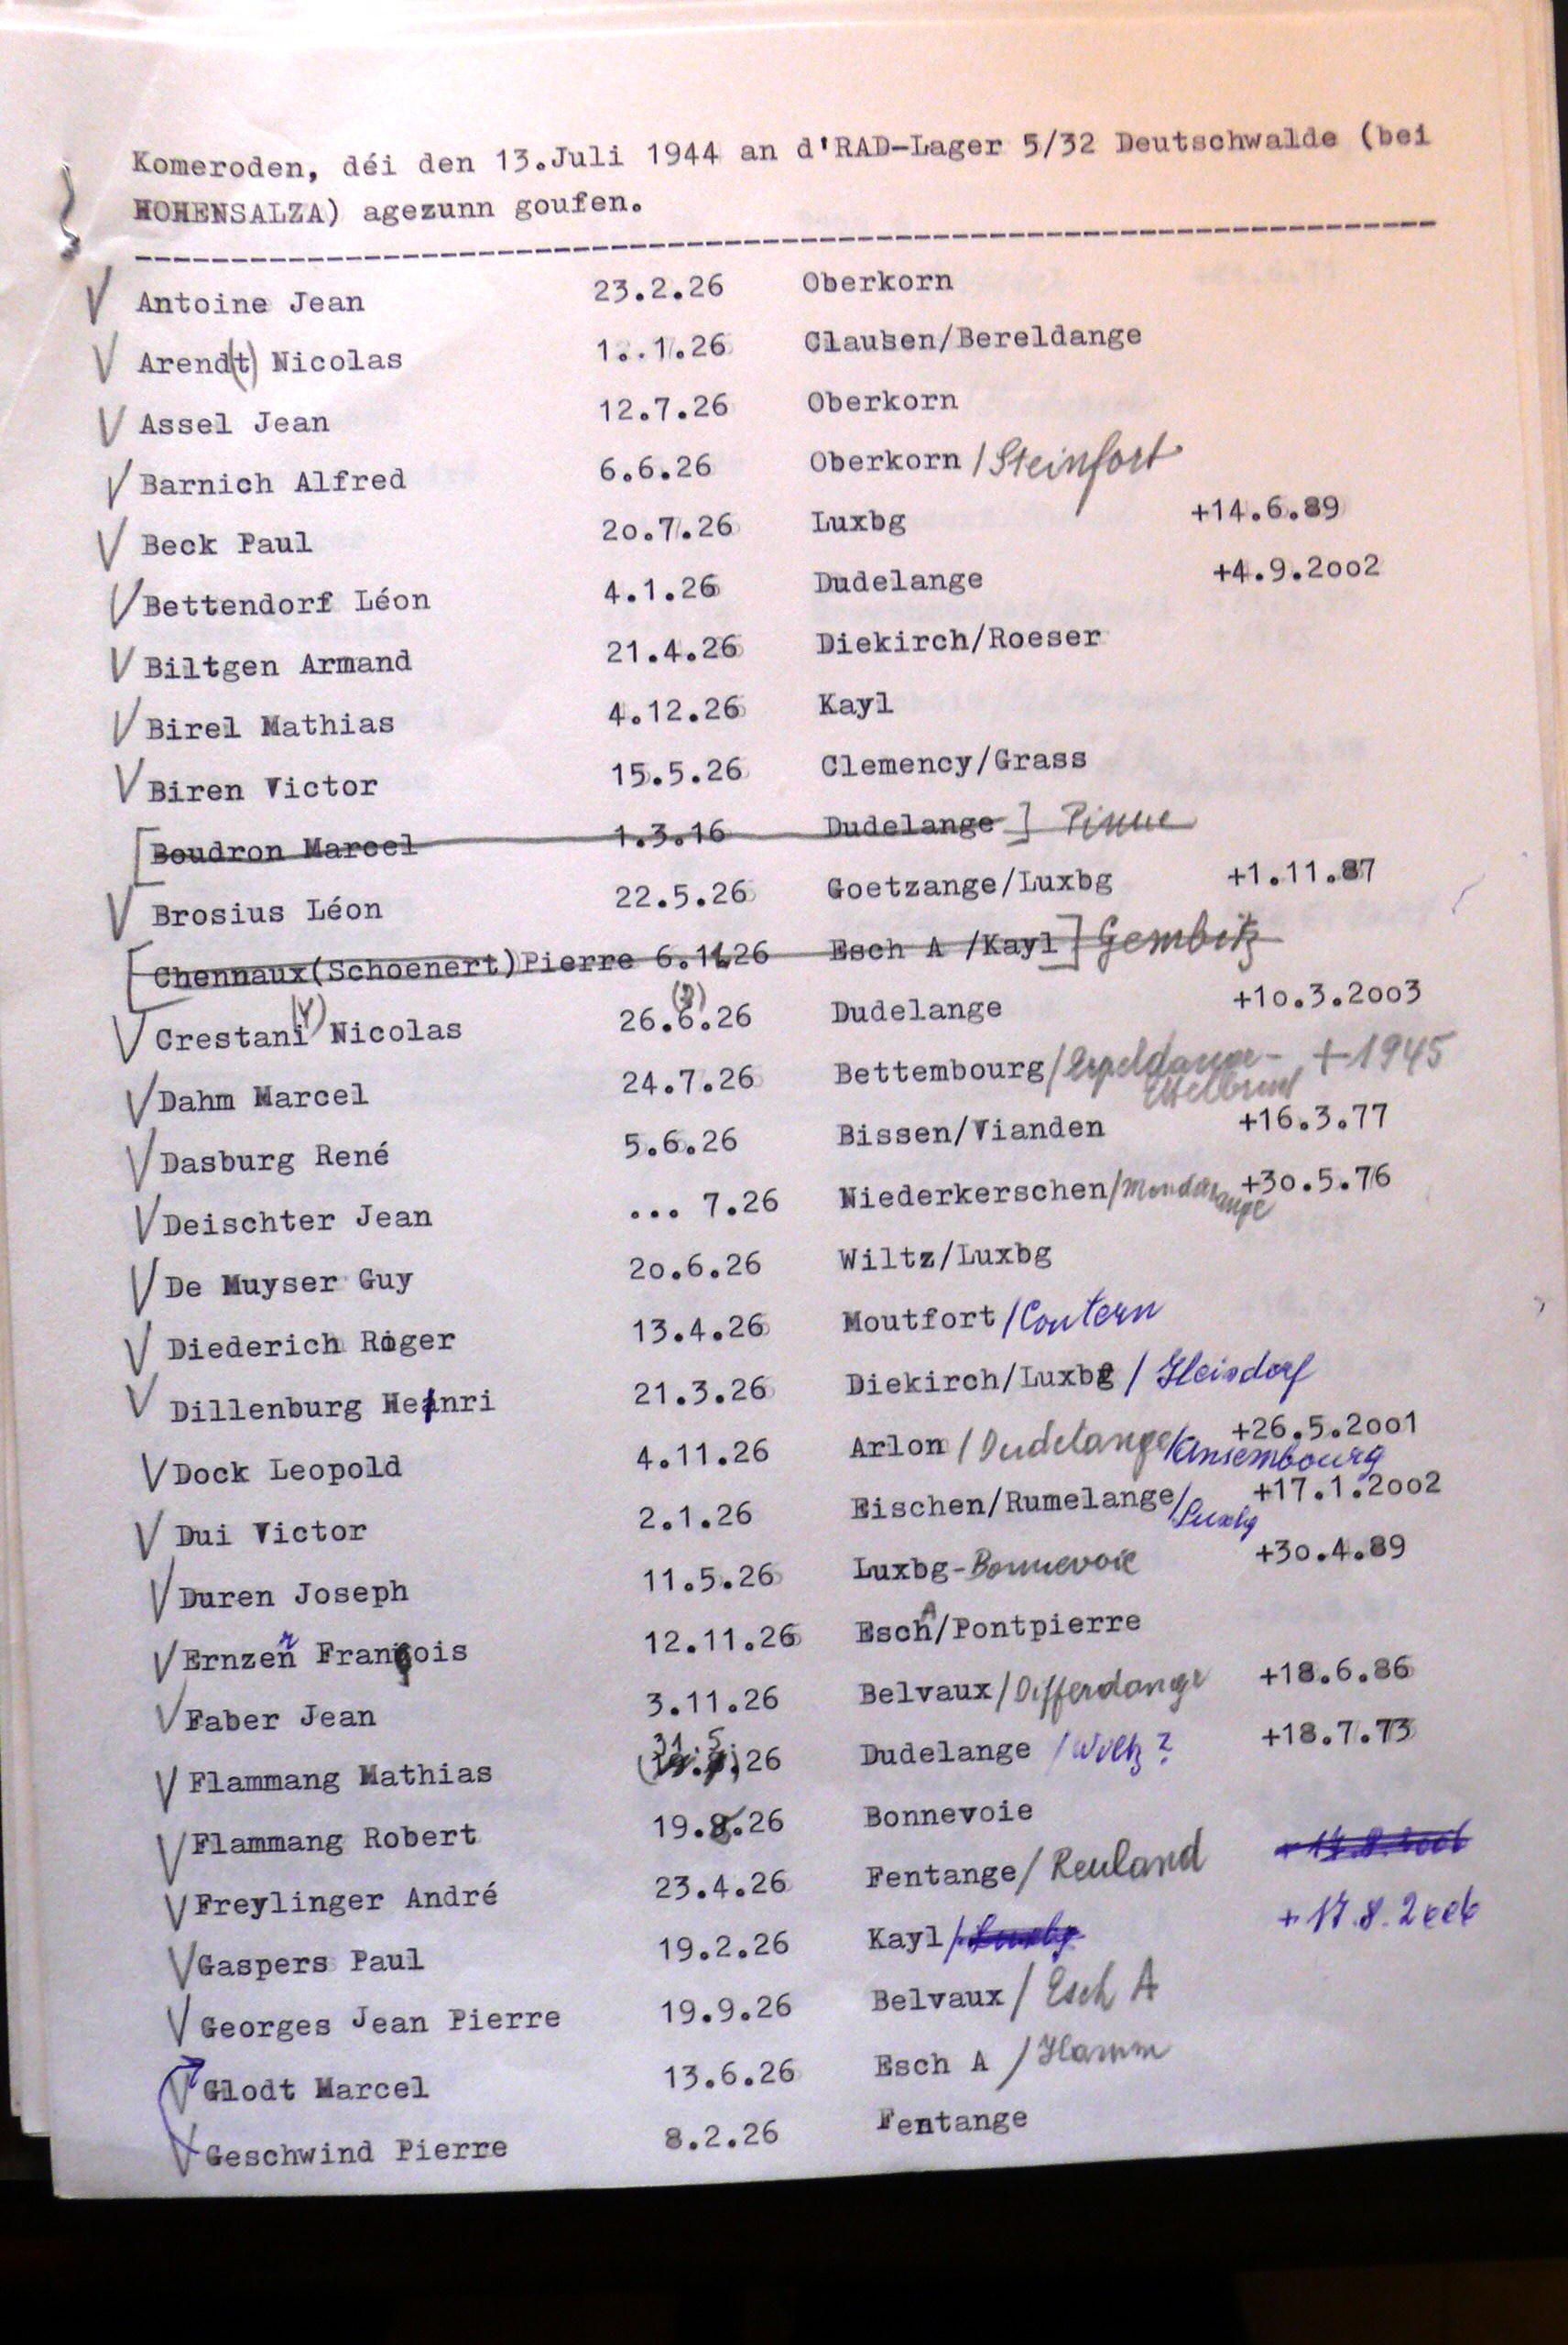 Komeroden, déi den 13.Juli 1944 an d'RAD-Lager 5/32 Deutschwalde (bei
HOHENSALZA) agezunn goufen.
V Antoine Jean 23.2.26 Oberkorn
V Arend(t) Nicolas 1..1.26 Clausen/Bereldange
V Assel Jean 12.7.26 Oberkorn
V Barnich Alfred 6.6.26 Oberkorn /Steinfort
V Beck Paul 2o.7.26 Luxbg +14.6.89
V Bettendorf Léon 4.1.26 Dudelange +4.9.2oo2
V Biltgen Armand 21.4.26 Diekirch/Roeser
V Birel Mathias 4.12.26 Kayl
V Biren Victor 15.5.26 Clemency/Grass
[Boudron Marcel 1.3.16 Dudelange ] Pinne
V Brosius Léon 22.5.26 Goetzange/Luxbg +1.11.87
[Chennaux(Schoenert)Pierre 6.11.26 Esch A /Kayl] Gembitz
V Crestani (Y) Nicolas 26.6.26 Dudelange +1o.3.2oo3
V Dahm Marcel 24.7.26 Bettembourg/Erpeldange- +1945
Ettelbruck
V Dasburg René 5.6.26 Bissen/Vianden +16.3.77
V Deischter Jean ... 7.26 Niederkerschen/Mondercange +3o.5.76
V De Muyser Guy 2o.6.26 Wiltz/Luxbg
V Diederich Roger 13.4.26 Moutfort /Contern
V Dillenburg Henri 21.3.26 Diekirch/Luxbg / Heisdorf
V Dock Leopold 4.11.26 Arlon / Dudelange/Ansembourg +26.5.2oo1
V Dui Victor 2.1.26 Eischen/Rumelange/Luxbg +17.1.2oo2
V Duren Joseph 11.5.26 Luxbg-Bonnevoie +3o.4.89
V Ernzer François 12.11.26 Esch A/Pontpierre
V Faber Jean 3.11.26 Belvaux/Differdange +18.6.86
V Flammang Mathias 31.5.26 Dudelange /Wiltz? +18.7.73
V Flammang Robert 19.8.26 Bonnevoie
V Freylinger André 23.4.26 Fentange/ Reuland
V Gaspers Paul 19.2.26 Kayl/Luxbg +17.8.2006
V Georges Jean Pierre 19.9.26 Belvaux / Esch A
V Glodt Marcel 13.6.26 Esch A /Hamm
V Geschwind Pierre 8.2.26 Fentange